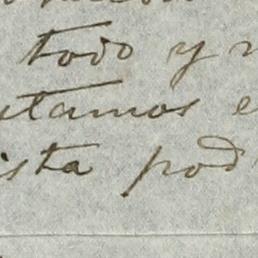 todo y
tamos e
ista pod